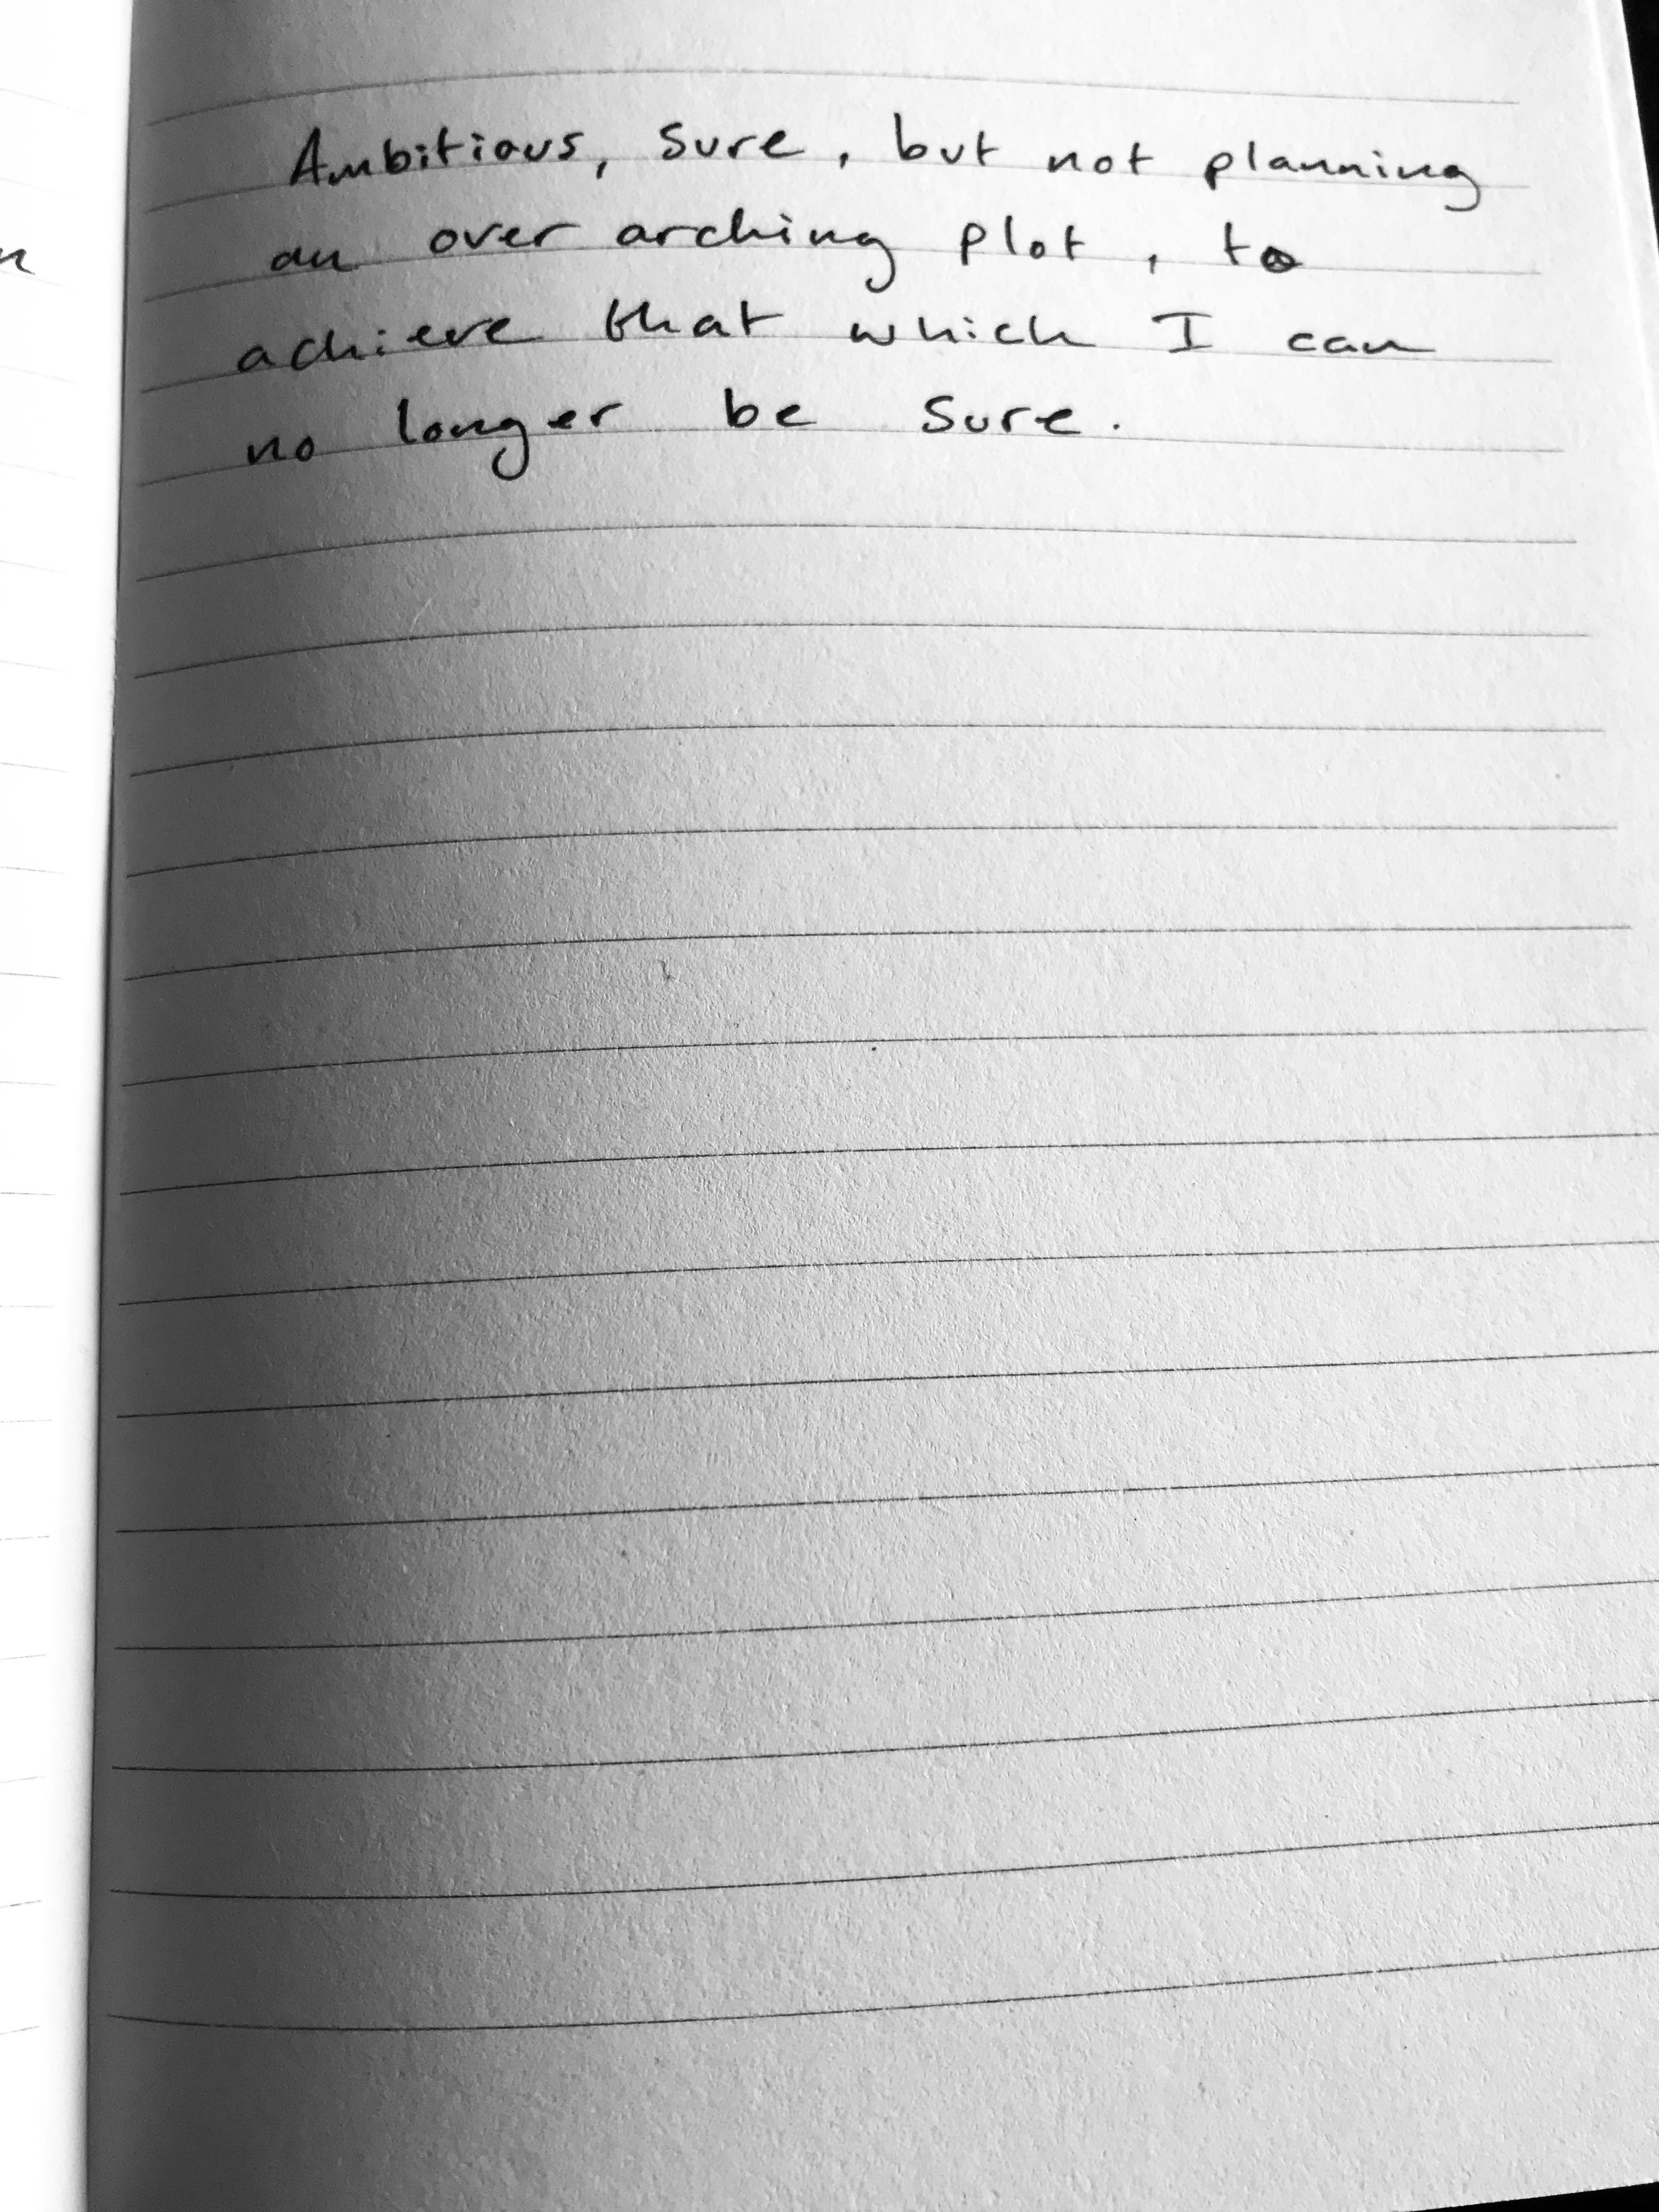 Ambitious, sure, but not planning
an over arching plot, to
achieve that which I can
no longer be sure.